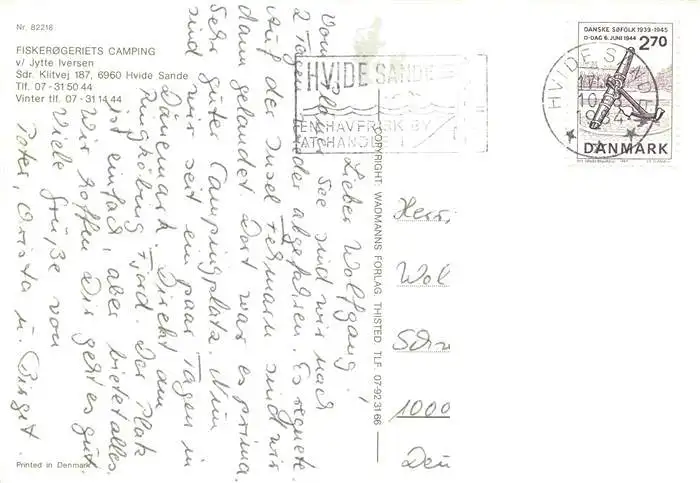 Nr. 82216
FISKERØGERIETS CAMPING
v/ Jytte Iversen
Sdr. Klitvej 187, 6960 Hvide Sande
Tlf. 07-31 50 44
Vinter tlf. 07-31 14 44
Lieber Wolfgang!
Vom See sind wir nach
2 Tagen wieder abgefahren. Es regnete.
Auf der Insel Fehmarn sind wir
dann gelandet. Dort war es prima.
Sehr guter Campingplatz. Nun
sind wir seit ein paar Tagen in
Dänemark. Direkt am
Ringkøbing Fjord. Der Platz
ist einfach, aber bietet alles.
Wir hoffen Dir geht es gut.
Viele Grüße von
Peter, Christa u. Birgit.
Printed in Denmark
COPYRIGHT: WADMANNS FORLAG THISTED TLF. 07-92 31 66
HVIDE SANDE
EN HAVFRISK BY
AT HANDLE I
HVIDE SANDE
DANSKE SØFOLK 1939-1945
D-DAG 6. JUNI 1944
2.70
DANMARK
Herr
Wol
1000